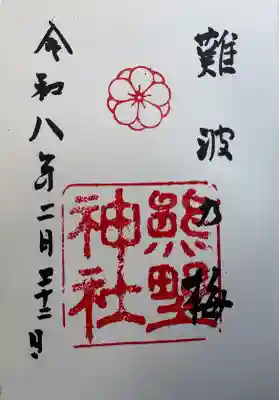 難波の梅
熊野
神社
令和八年二月二十二日